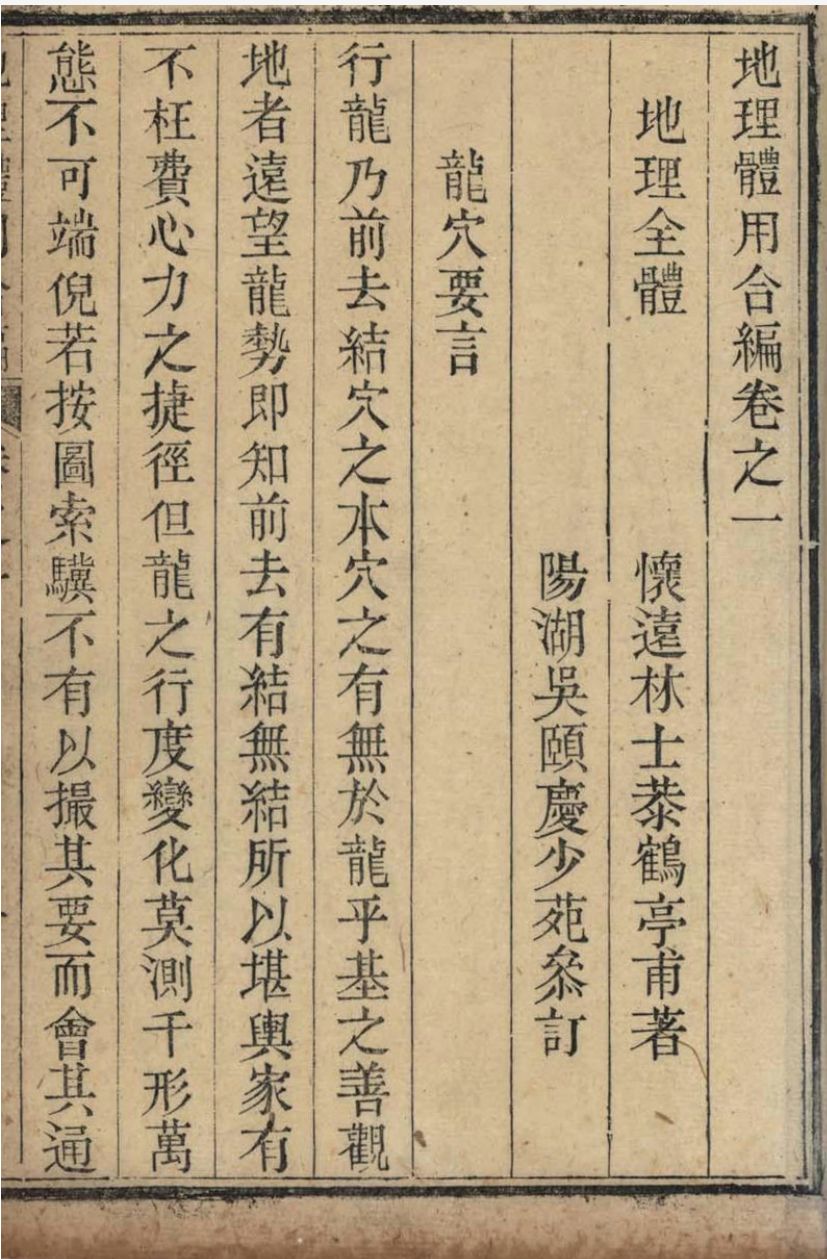 地理體用合編卷之一
地理全體 懷遠林士菾鶴亭甫著
陽湖吳頤慶少苑叅訂
龍穴要言
行龍乃前去結穴之本穴之有無於龍乎基之善觀
地者遠望龍勢即知前去有結無結所以堪輿家有
不枉費心力之捷徑但龍之行度變化莫測千形萬
態不可端倪若按圖索驥不有以撮其要而會其通